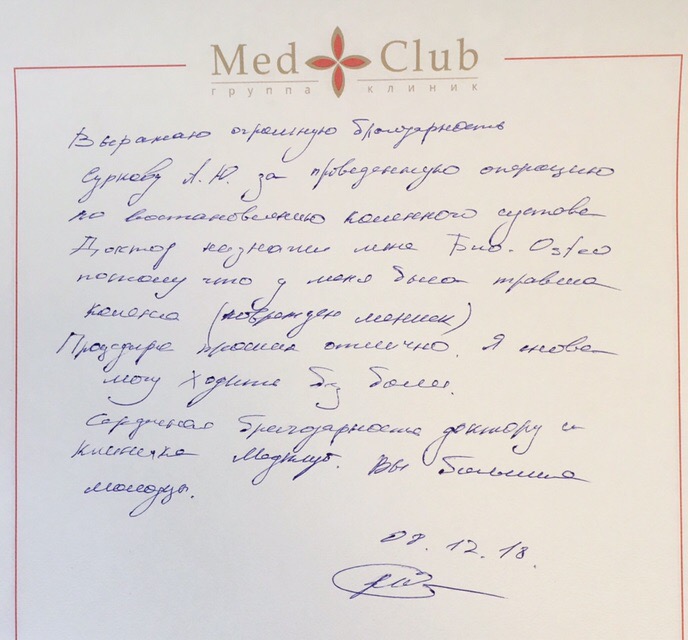 Med Club
группа клиник
Выражаю огромную благодарность
Суркову А.Ю. за проведенную операцию
по востановлению коленного сустава
Доктор назначил мне Био-Osteo
потому что у меня была травма
колена (поврежден мениск)
Процедура прошла отлично. Я снова
могу ходить без боли.
Сердечная благодарность доктору и
клинике Медклуб. Вы большие
молодцы.
08.12.18.